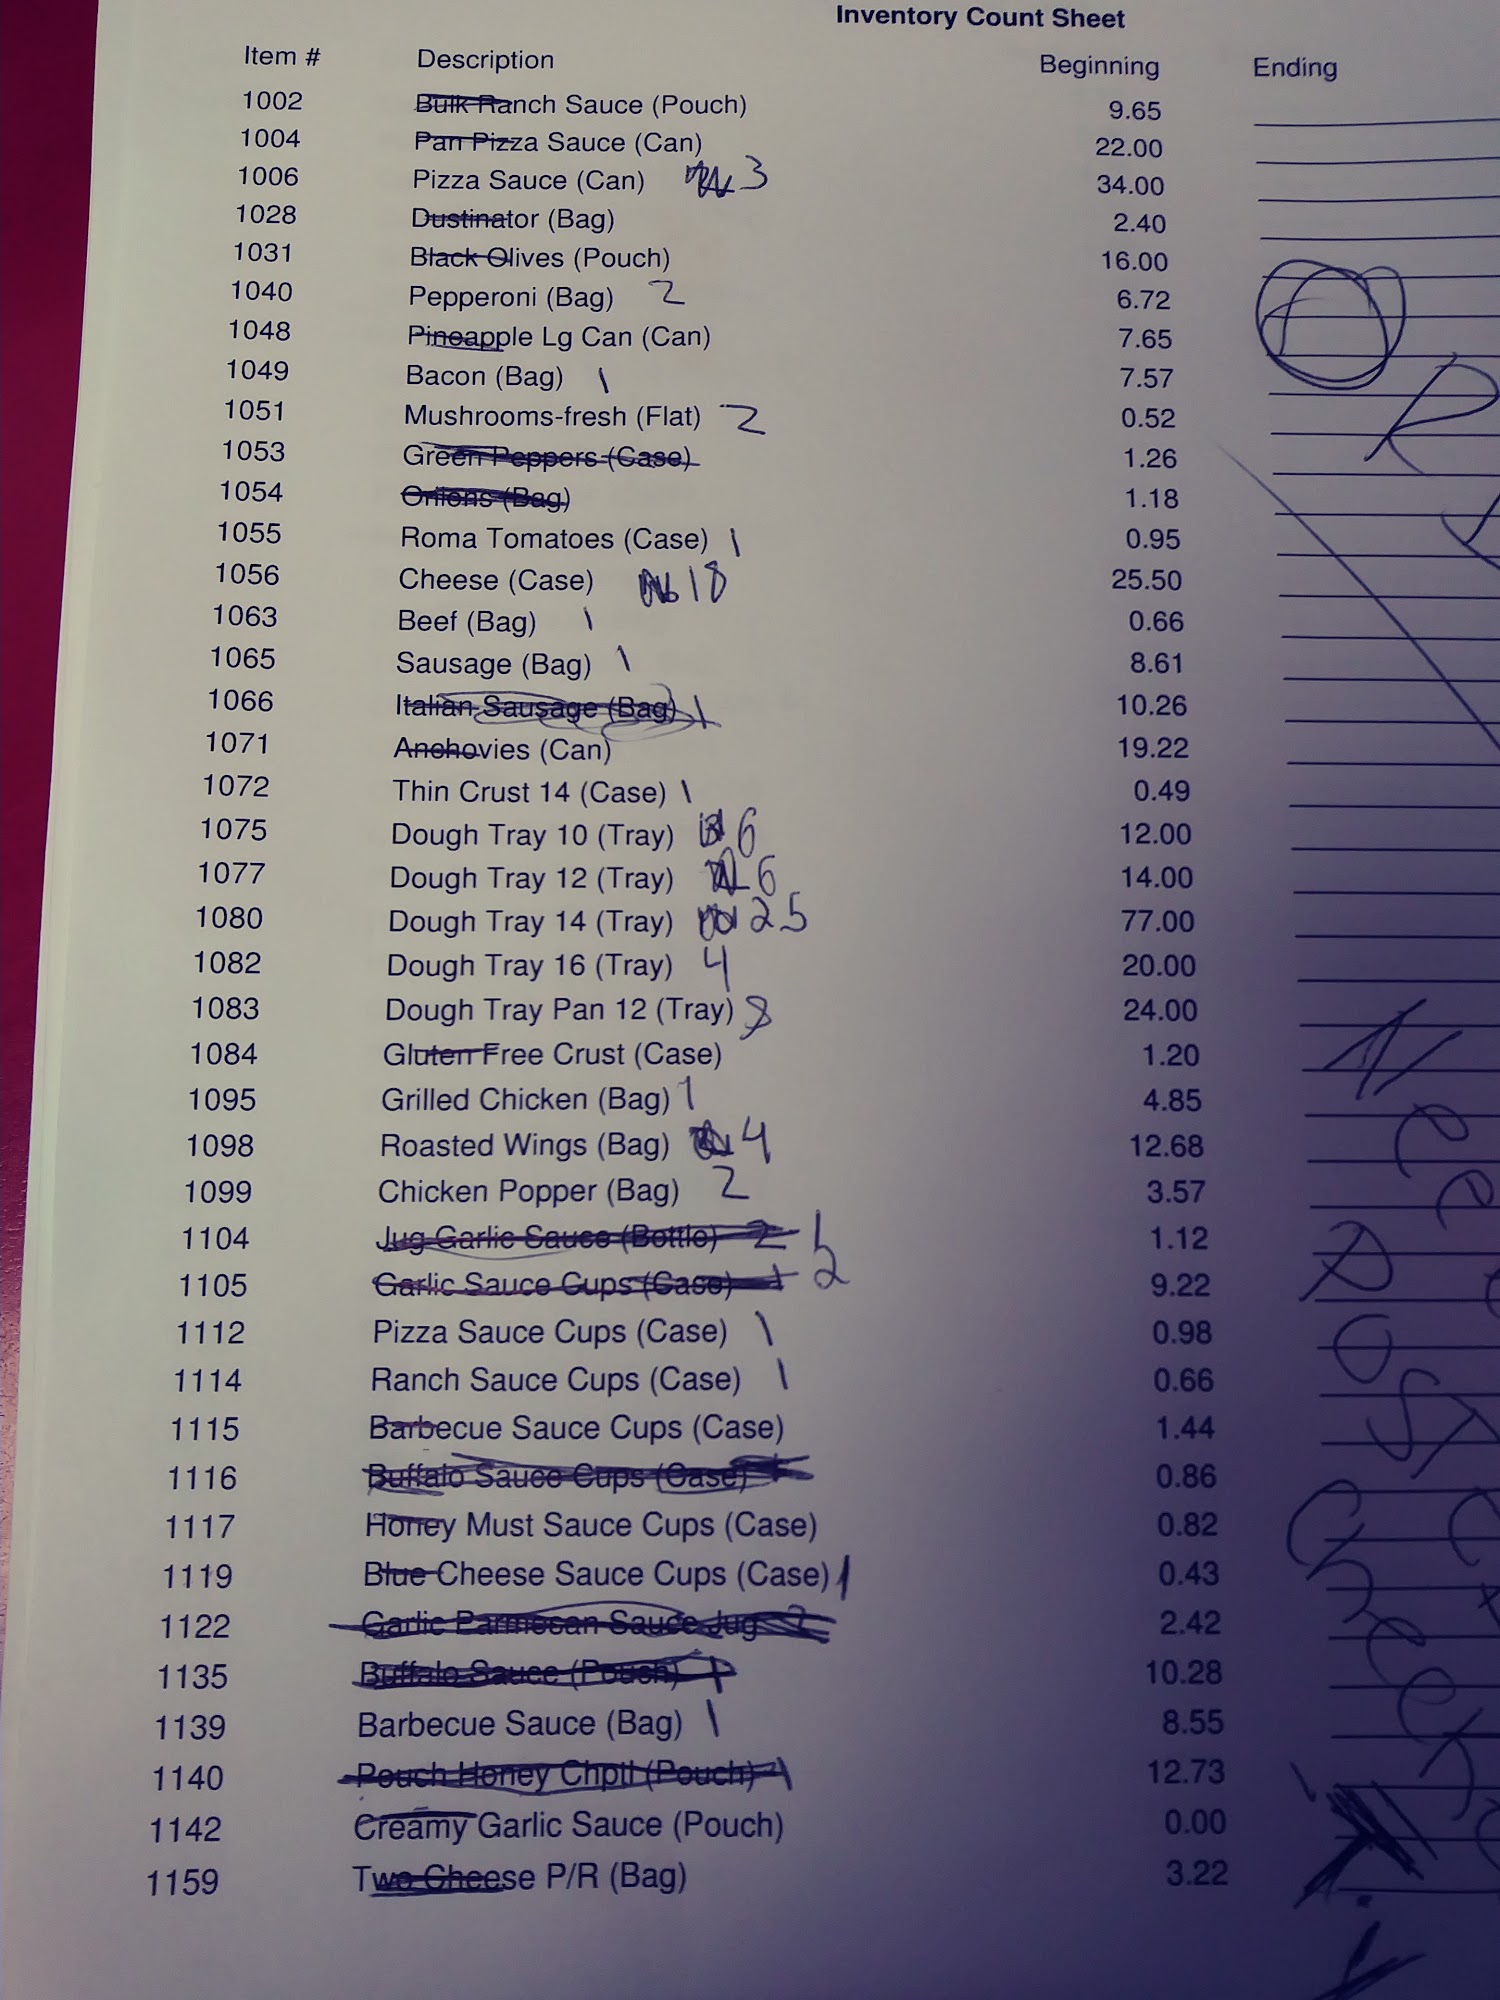 Inventory Count Sheet
Item # Description Beginning Ending
1002 Bulk Ranch Sauce (Pouch) 9.65
1004 Pan Pizza Sauce (Can) 22.00
1006 Pizza Sauce (Can) 3 34.00
1028 Dustinator (Bag) 2.40
1031 Black Olives (Pouch) 16.00
1040 Pepperoni (Bag) 2 6.72
1048 Pineapple Lg Can (Can) 7.65
1049 Bacon (Bag) 1 7.57
1051 Mushrooms-fresh (Flat) 2 0.52
1053 Green Peppers (Case) 1.26
1054 Onions (Bag) 1.18
1055 Roma Tomatoes (Case) 1 0.95
1056 Cheese (Case) 18 25.50
1063 Beef (Bag) 1 0.66
1065 Sausage (Bag) 1 8.61
1066 Italian Sausage (Bag) 1 10.26
1071 Anchovies (Can) 19.22
1072 Thin Crust 14 (Case) 1 0.49
1075 Dough Tray 10 (Tray) 6 12.00
1077 Dough Tray 12 (Tray) 6 14.00
1080 Dough Tray 14 (Tray) 25 77.00
1082 Dough Tray 16 (Tray) 4 20.00
1083 Dough Tray Pan 12 (Tray) 8 24.00
1084 Gluten Free Crust (Case) 1.20
1095 Grilled Chicken (Bag) 1 4.85
1098 Roasted Wings (Bag) 4 12.68
1099 Chicken Popper (Bag) 2 3.57
1104 Jug Garlic Sauce (Bottle) 2 1.12
1105 Garlic Sauce Cups (Case) 1 2 9.22
1112 Pizza Sauce Cups (Case) 1 0.98
1114 Ranch Sauce Cups (Case) 1 0.66
1115 Barbecue Sauce Cups (Case) 1.44
1116 Buffalo Sauce Cups (Case) 0.86
1117 Honey Must Sauce Cups (Case) 0.82
1119 Blue Cheese Sauce Cups (Case) 1 0.43
1122 Garlic Parmesan Sauce Jug 2.42
1135 Buffalo Sauce (Pouch) 1 10.28
1139 Barbecue Sauce (Bag) 1 8.55
1140 Pouch Honey Chptl (Pouch) 12.73
1142 Creamy Garlic Sauce (Pouch) 0.00
1159 Two Cheese P/R (Bag) 3.22